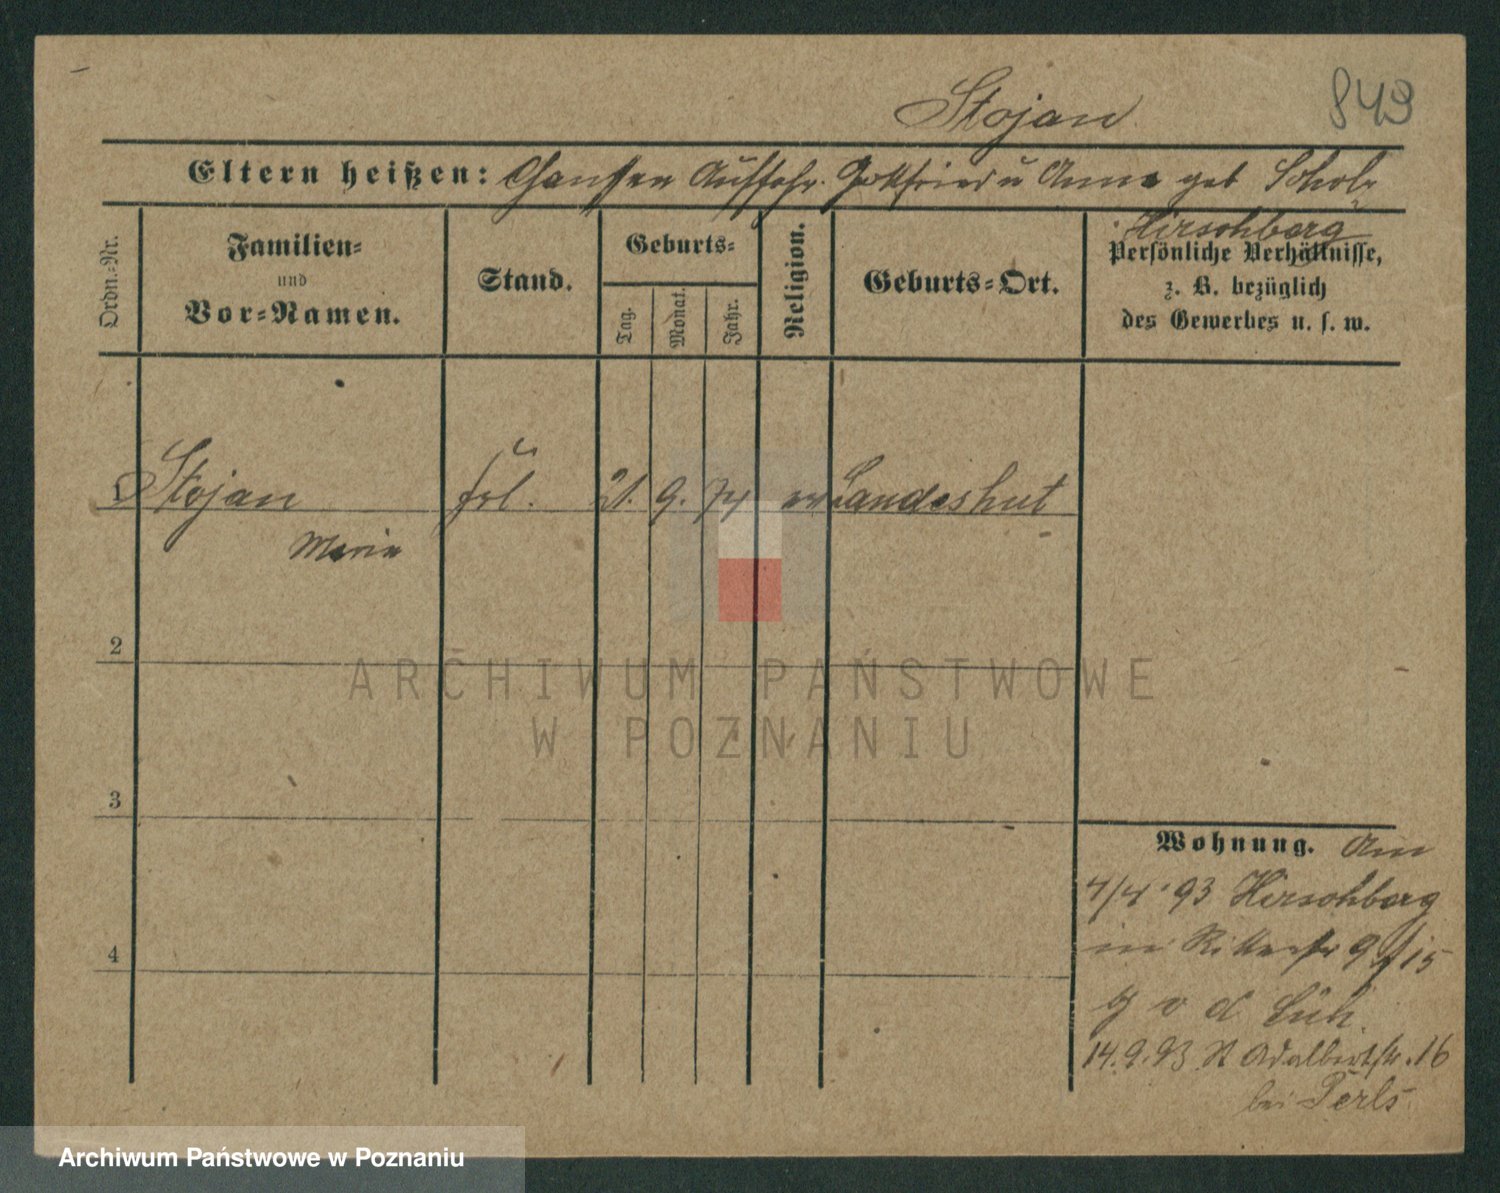 Stojan
843
Eltern heißen: Chaussee Aufseh. Gottfried u Anna geb Scholz
Hirschberg
Ordn.-Nr.
Familien-
und
Vor-Namen.
Stand.
Geburts-
Tag.
Monat.
Jahr.
Religion.
Geburts-Ort.
Persönliche Verhältnisse,
z. B. bezüglich
des Gewerbes u. s. w.
1 Stojan frl. 21. 9. 74 ev Landeshut
Maria
2
3
4
Wohnung. Am
4/4 93 Hirschberg
in Ritterstr 9 15
v d
14.9.93 St Adalbertstr. 16
bei Perls
ARCHIWUM PAŃSTWOWE
W POZNANIU
Archiwum Państwowe w Poznaniu